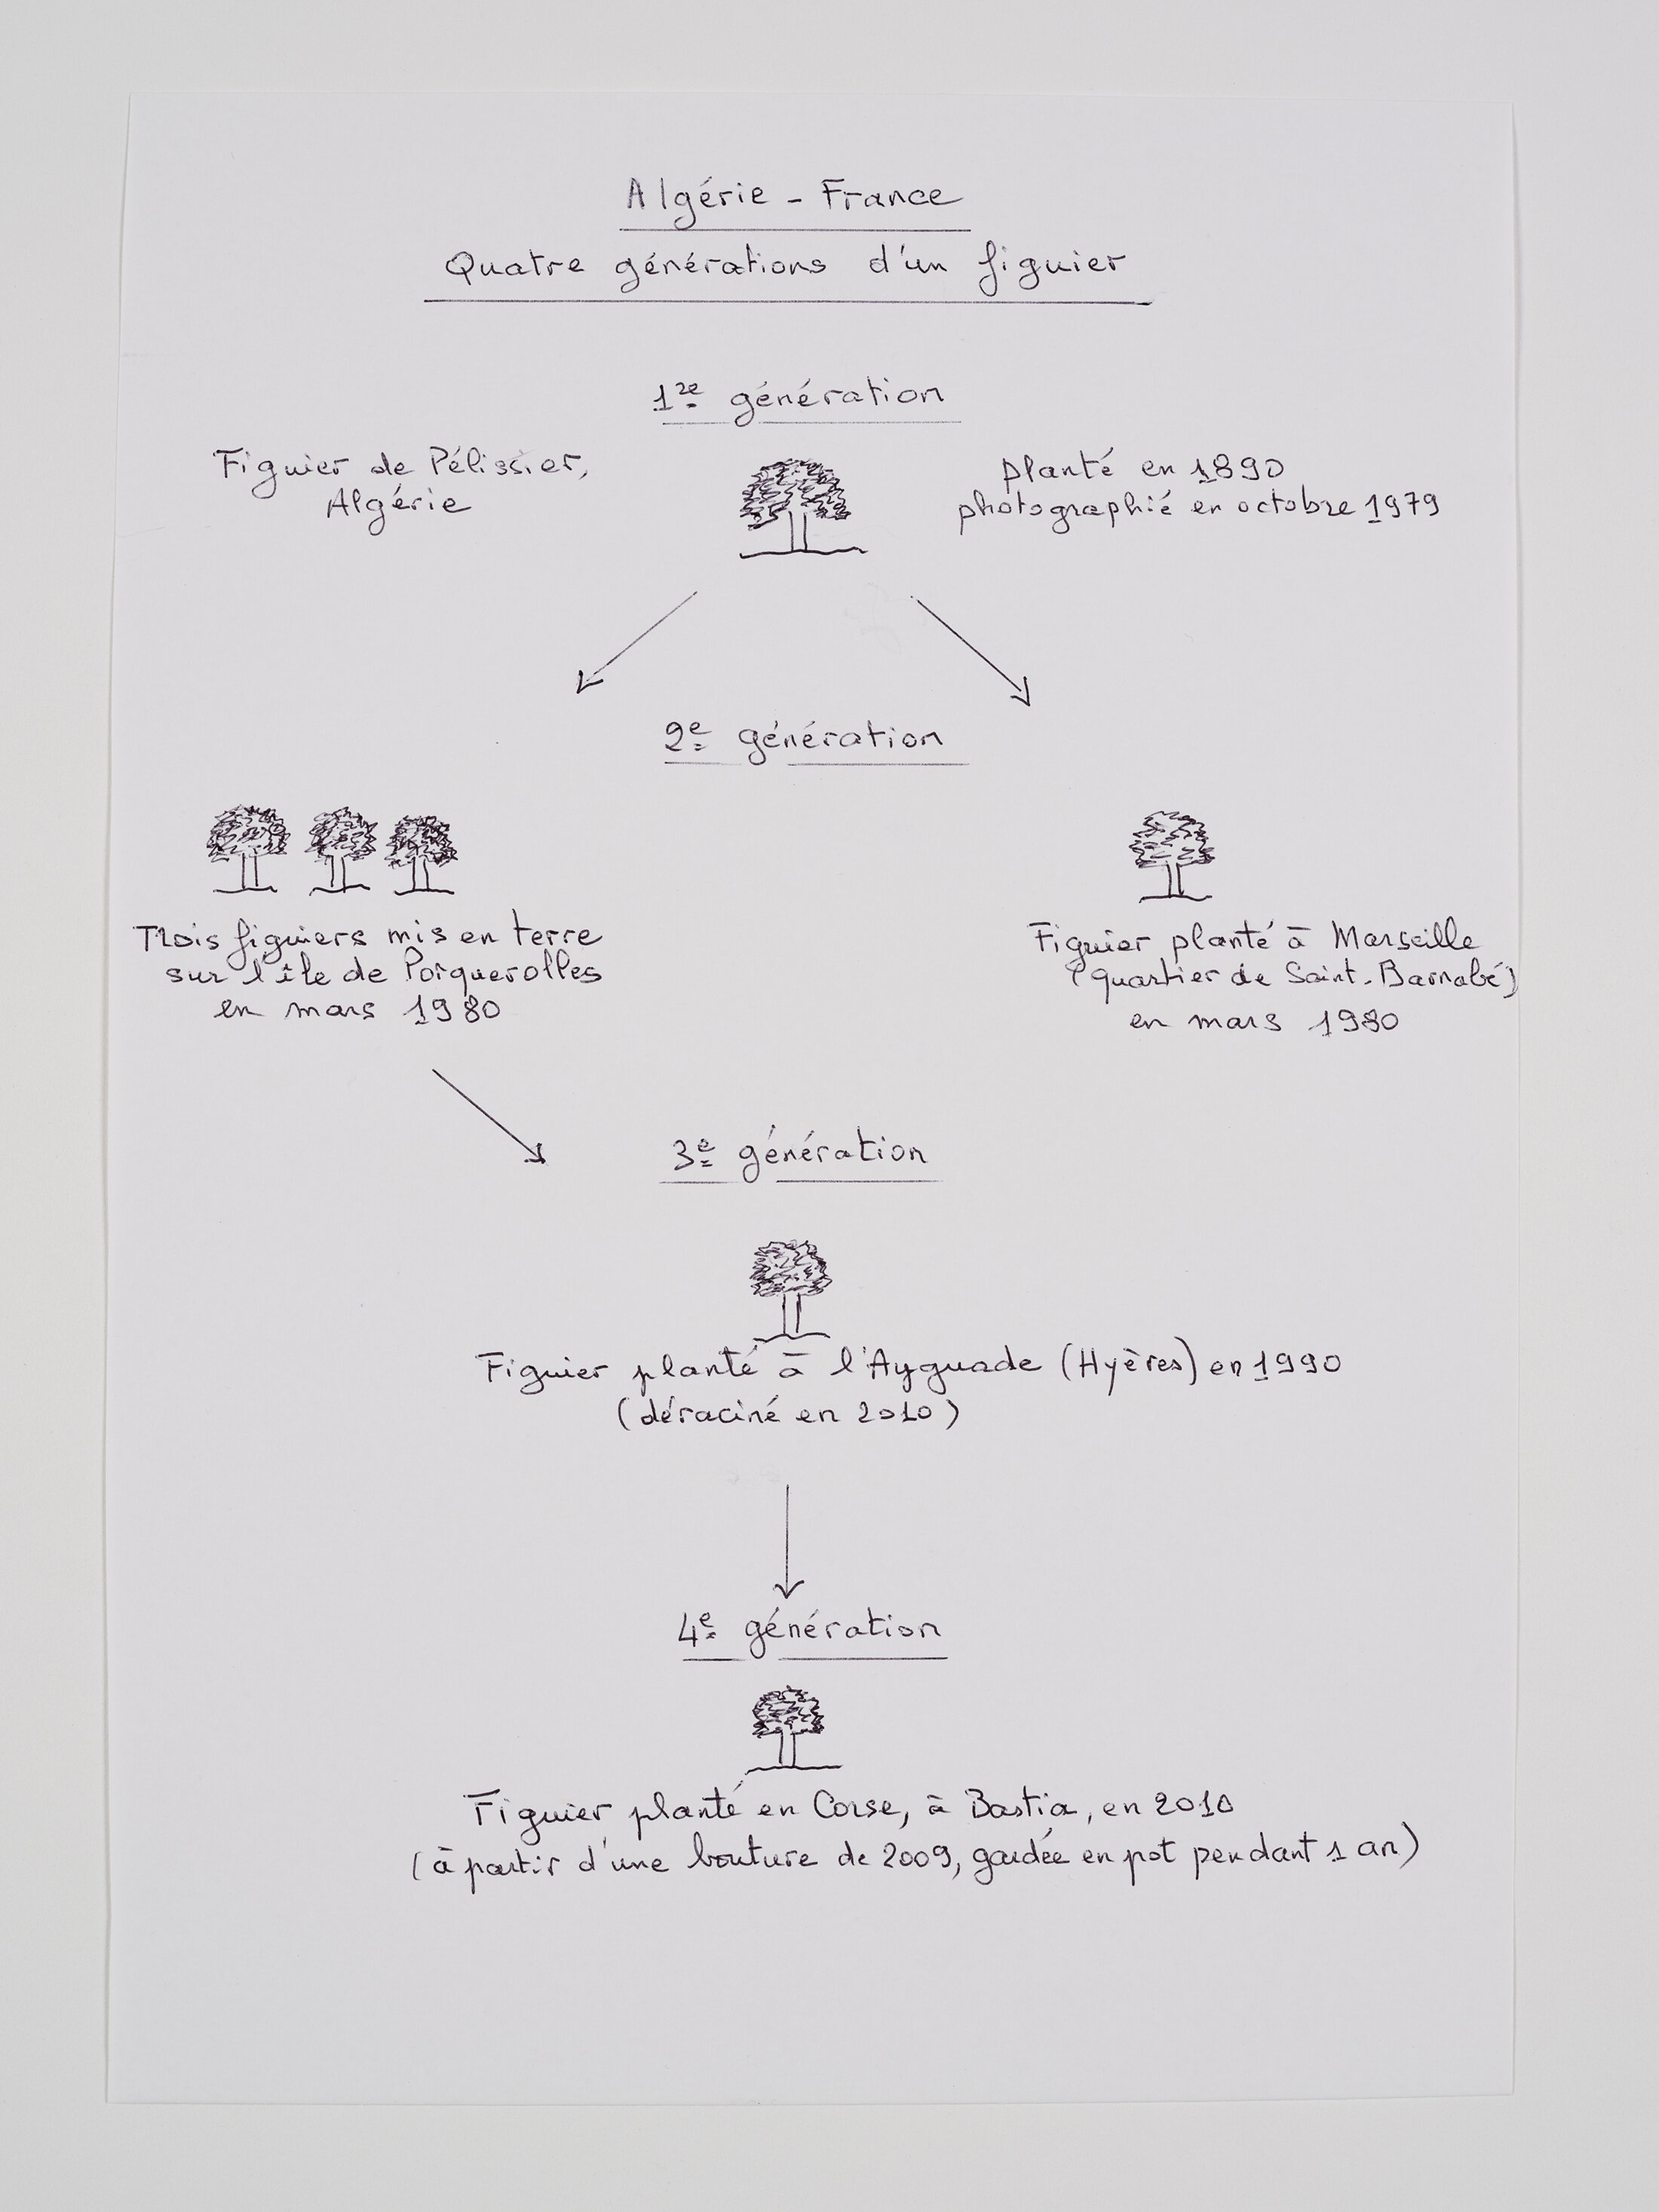 Algérie - France
Quatre générations d'un figuier
1re génération
Figuier de Pélissier,
Algérie
planté en 1890
photographié en octobre 1979
2e génération
Trois figuiers mis en terre
sur l'île de Porquerolles
en mars 1980
Figuier planté à Marseille
(quartier de Saint-Barnabé)
en mars 1980
3e génération
Figuier planté à l'Ayguade (Hyères) en 1990
(déraciné en 2010)
4e génération
Figuier planté en Corse, à Bastia, en 2010
(à partir d'une bouture de 2009, gardée en pot pendant 1 an)